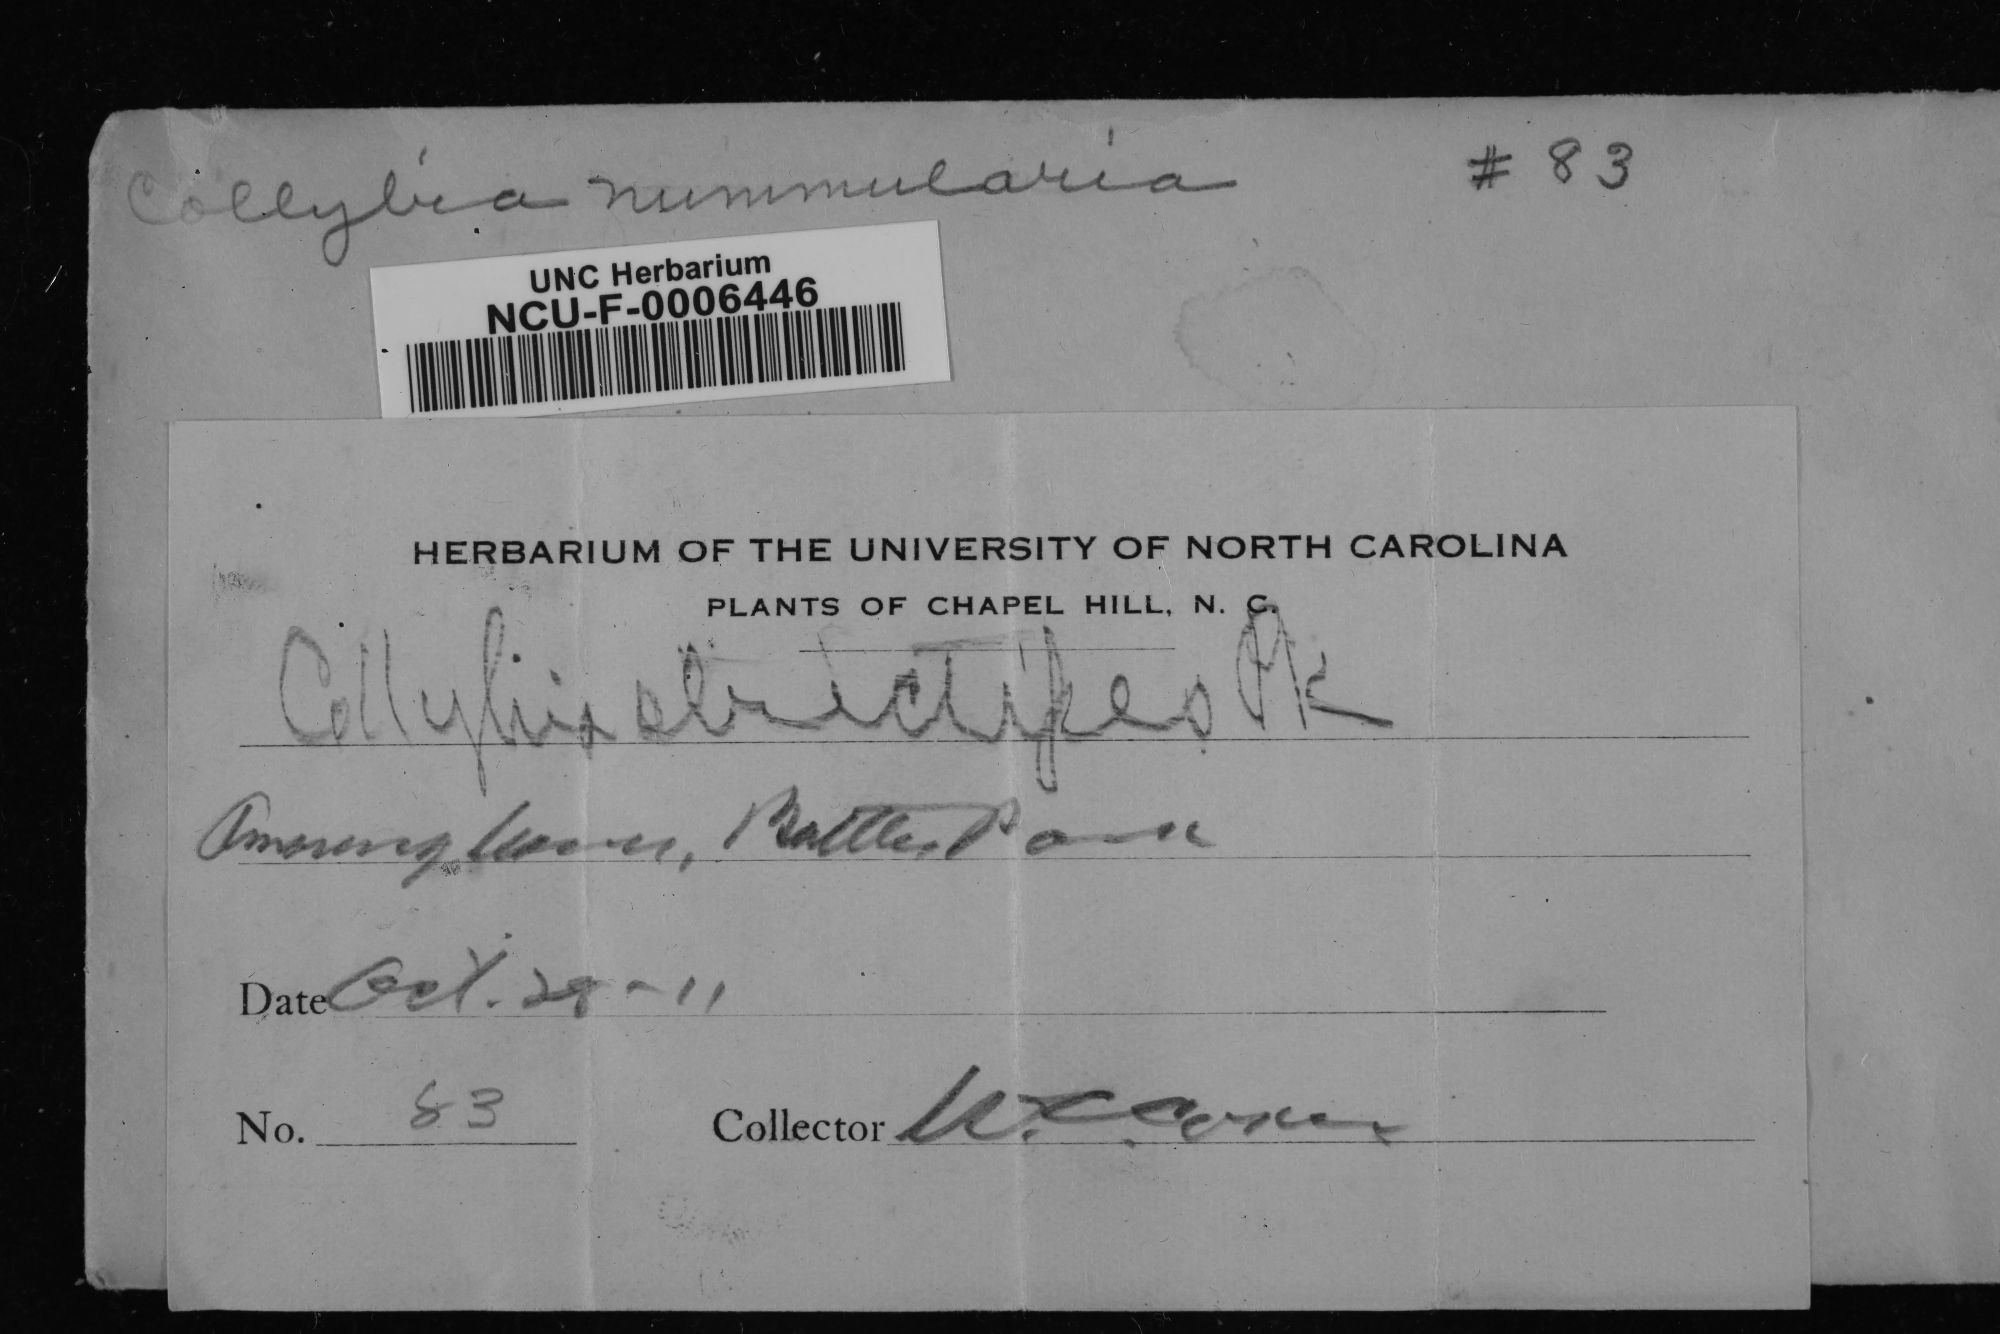 Collybia nummularia # 83
UNC Herbarium
NCU-F-0006446
HERBARIUM OF THE UNIVERSITY OF NORTH CAROLINA
PLANTS OF CHAPEL HILL, N. C.
Collybia strictipes Pk
Among leaves, Battle Park
Date Oct. 28 - 11
No. 83 Collector W. C. Coker